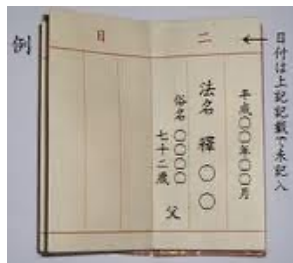 例
日付は上記記載で未記入
二
日
平成〇〇年〇〇月
法名 釋〇〇
俗名 〇〇〇〇
七十二歳 父